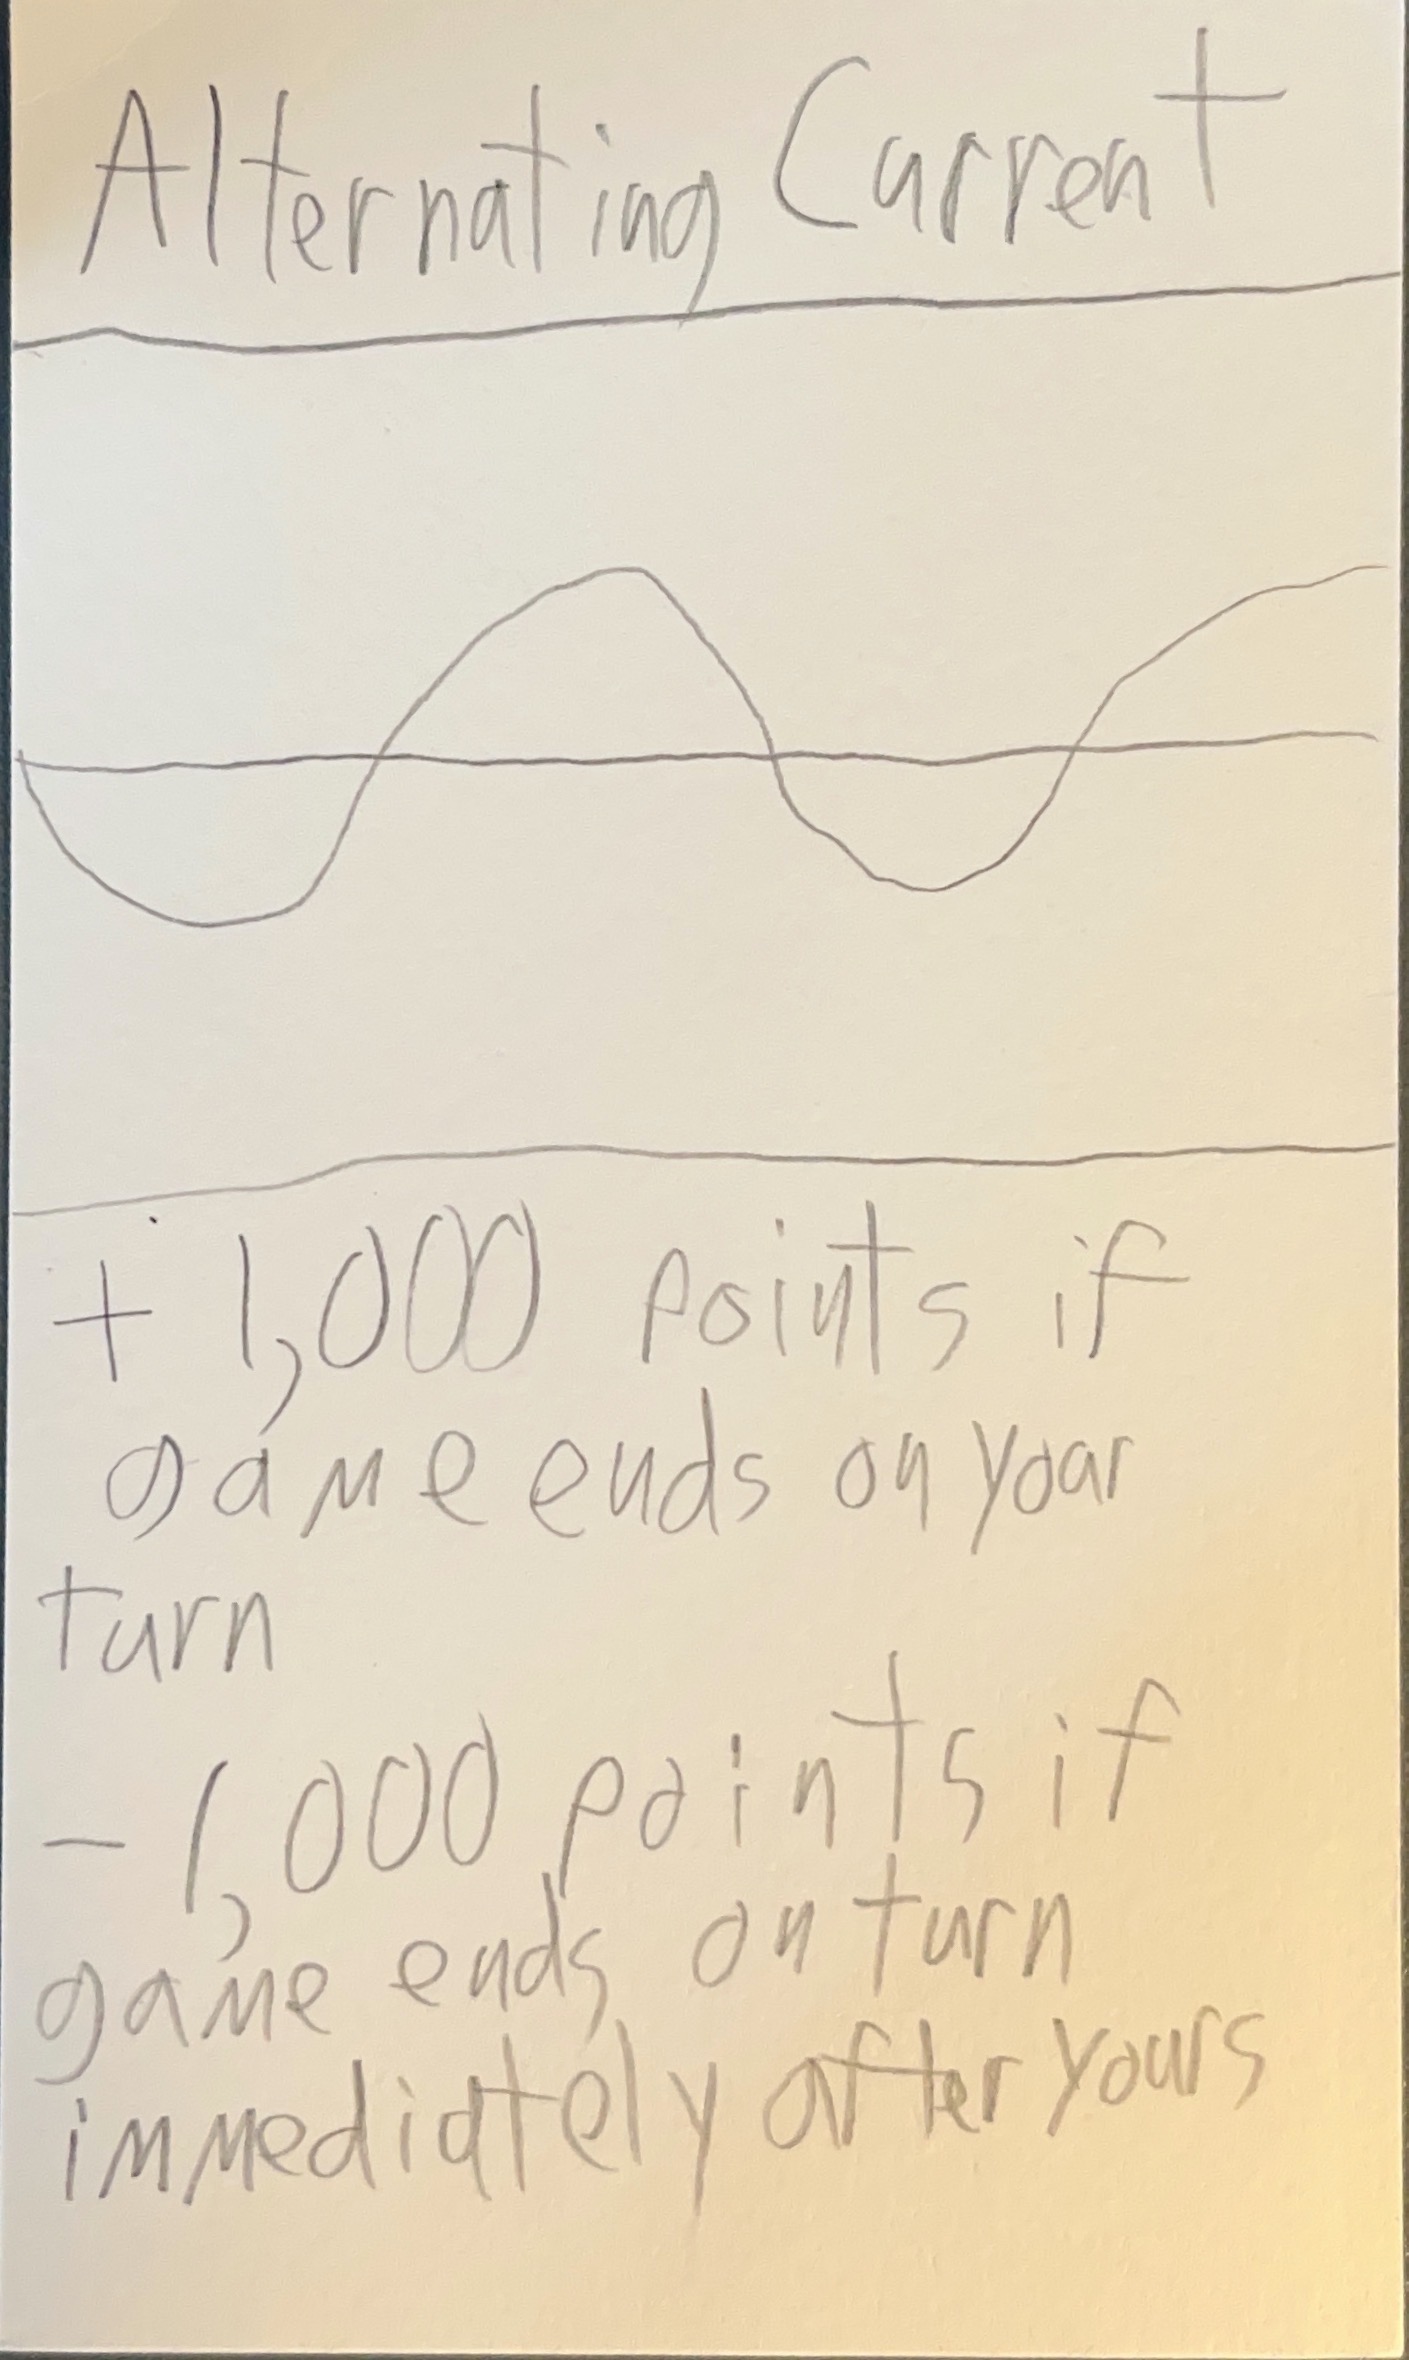 Alternating Current
+ 1,000 points if
game ends on your
turn
- 1,000 points if
game ends on turn
immediately after yours